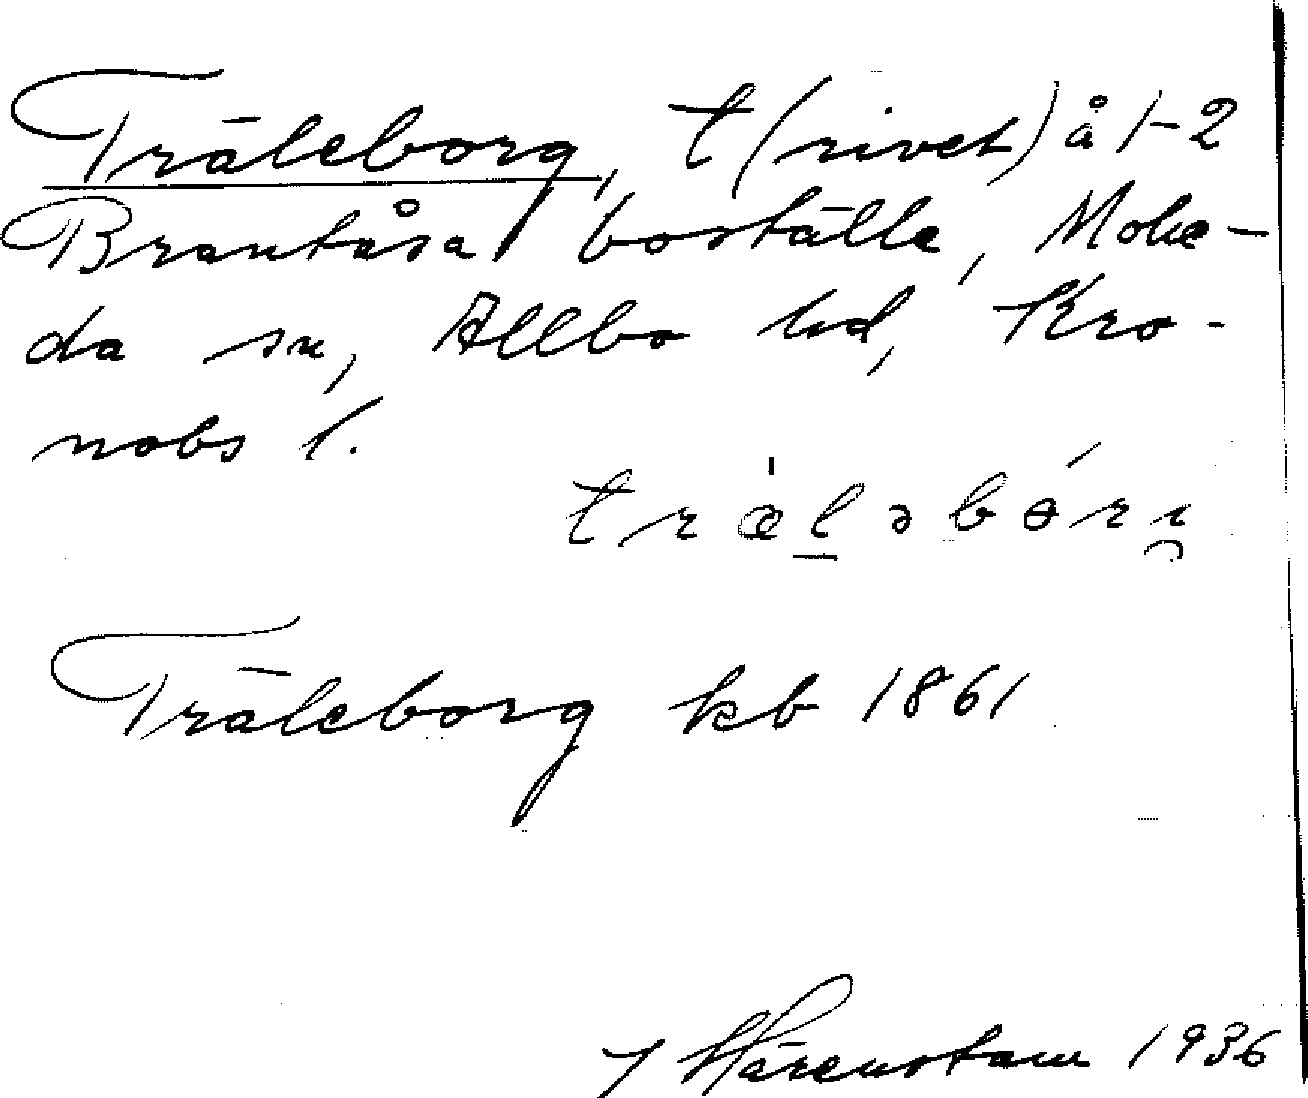 Träleborg, t (rivet) å 1-2
Brantåsa boställe, Mohe-
da sn, Allbo hd, Kro-
nobs l.
træləbóri̯
Träleborg kb 1861
Härenstam 1936